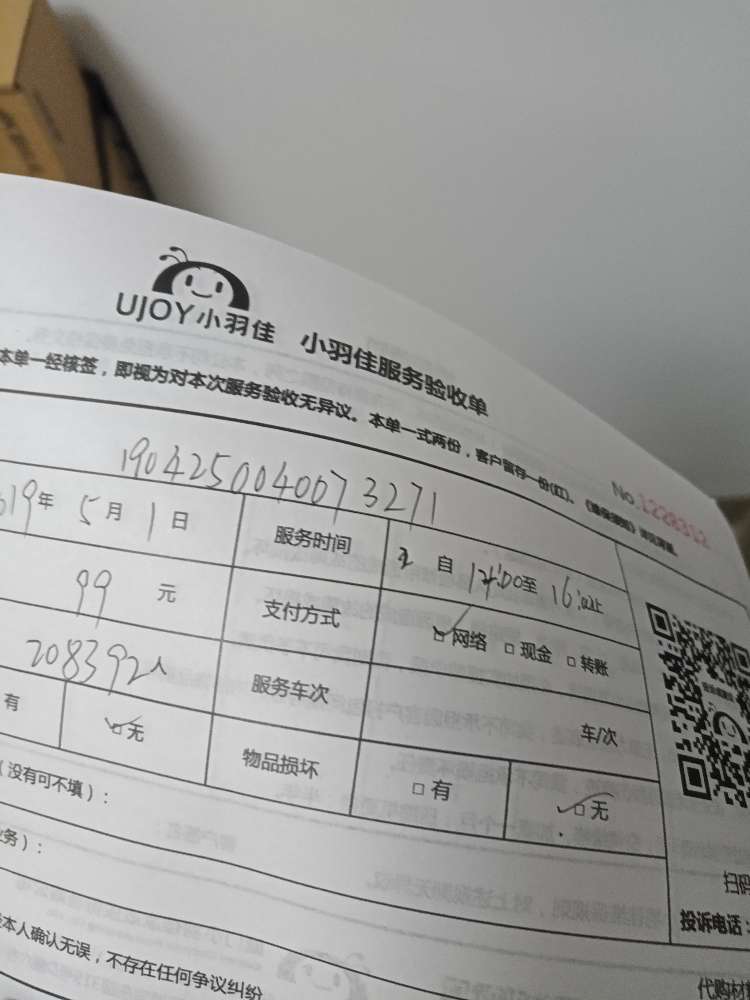 UJOY小羽佳 小羽佳服务验收单
本单一经核签，即视为对本次服务验收无异议。本单一式两份，客户留存一份(红)。
No.1228312
1904250040073271
19年 5月 1日 服务时间 自 14:00至 16:00止
99 元 支付方式 网络 现金 转账
208392人 服务车次 车/次
有 无 物品损坏 有 无
（没有可不填）：
务）：
投诉电话：
本人确认无误，不存在任何争议纠纷
代购材
扫码